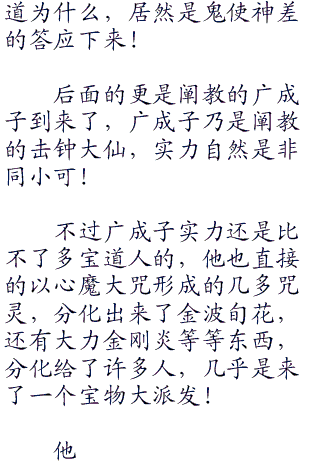 道为什么，居然是鬼使神差
的答应下来！
后面的更是阐教的广成
子到来了，广成子乃是阐教
的击钟大仙，实力自然是非
同小可！
不过广成子实力还是比
不了多宝道人的，他也直接
的以心魔大咒形成的几多咒
灵，分化出来了金波旬花，
还有大力金刚炎等等东西，
分化给了许多人，几乎是来
了一个宝物大派发！
他